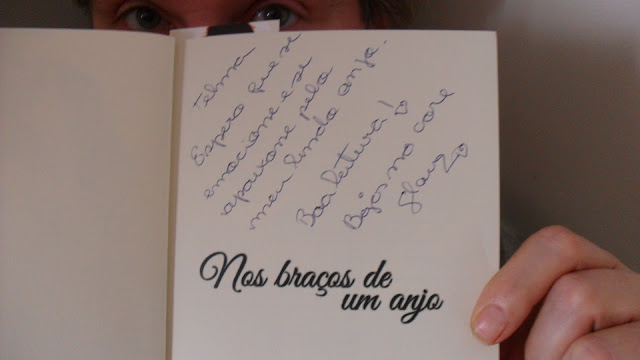 Telma
Espero que se
emocione e se
apaixone pelo
meu lindo anjo.
Boa leitura!
Bejos no core
Nos braços de
um anjo